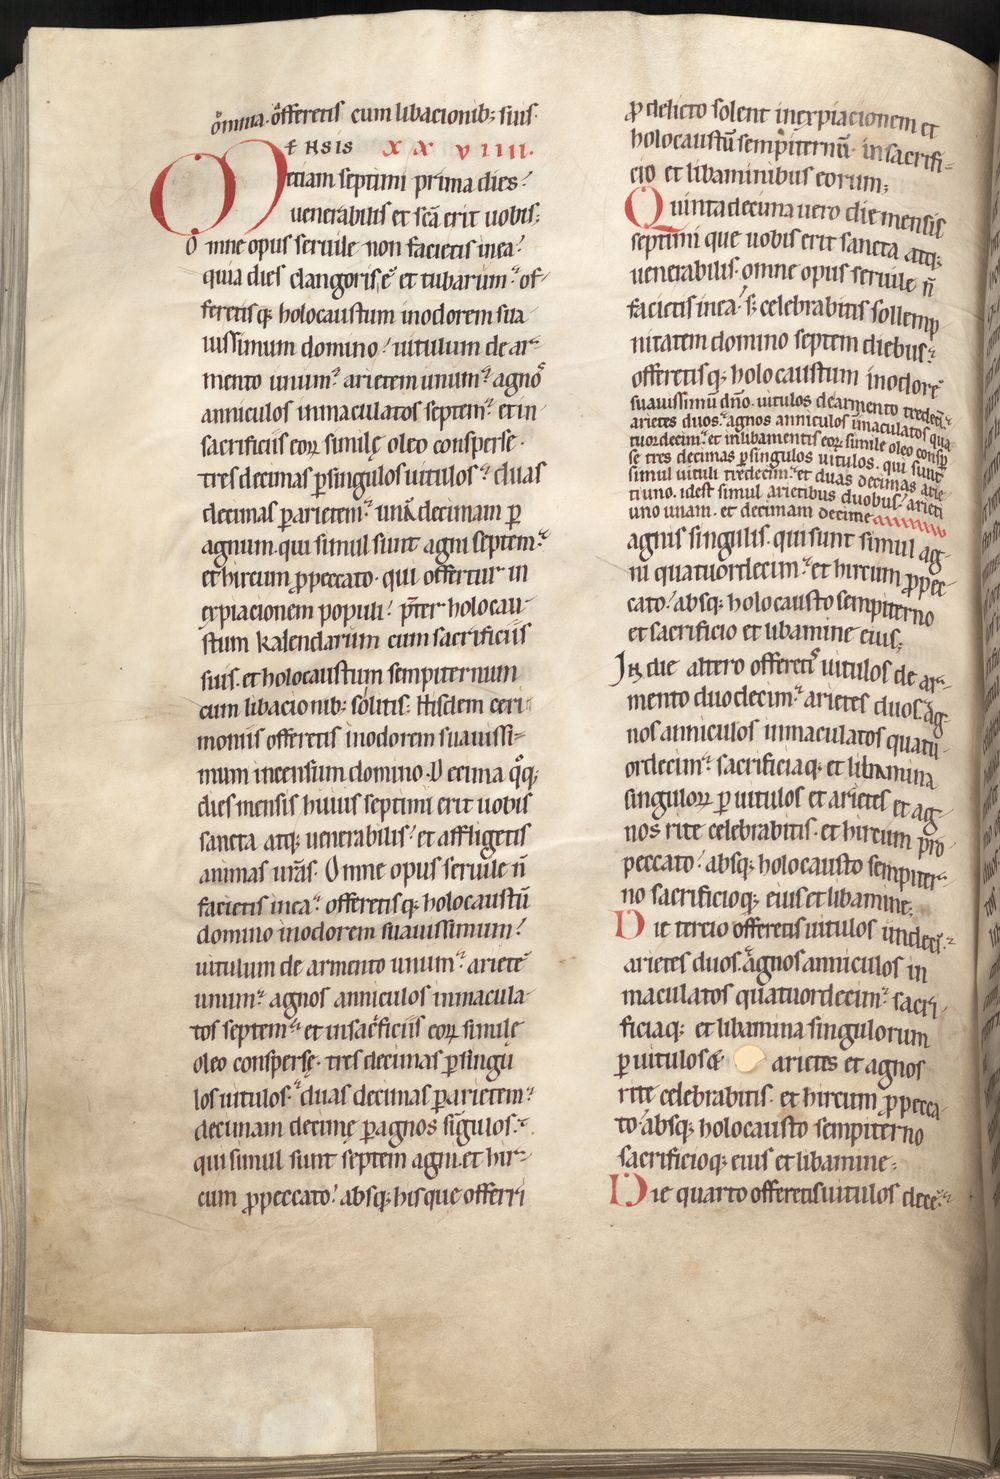 om̅ia. offeretis cum libacionib; suis.
MENSIS XXVIIII.
etiam septimi prima dies
uenerabilis et sc̅a erit uobis;
Omne opus seruile non facietis inea
quia dies clangoris e̅ et tubarum. of-
feretisq; holocaustum inodorem sua
uissimum domino. uitulum de ar-
mento unum. arietem unum. agno̅s
anniculos inmaculatos septem. et in
sacrificiis eoꝝ similę oleo consperse.
tres decimas ꝑ singulos uitulos. duas
decimas ꝑ arietem. una̅ decimam ꝑ
agnum. qui simul sunt agni septem.
et hircum ꝓ peccato. qui offertur in
expiacionem populi. p̅ter holocau
stum kalendarum cum sacrificiis
suis. et holocaustum sempiternum
cum libacionib; solitis; Hisdem ceri
moniis offeretis inodorem suauissi-
mum incensum domino. Decima q̊q;
dies mensis huius septimi erit uobis
sancta atq; uenerabilis. et affligetis
animas ur̅as. Omne opus seruile n̅
facietis inea. offeretisq; holocaustu̅
domino inodorem suauissimum.
uitulum de armento unum. ariete̅
unum. agnos anniculos inmacula
tos septem. et in sacrificiis eoꝝ simile
oleo conspersę. tres decimas ꝑ singu
los uitulos. duas decimas ꝑ arietem.
decimam decimę ꝑ agnos singulos.
qui simul sunt septem agni. et hir-
cum ꝓ peccato. absq; his que offerri
ꝓ delicto solent inexpiacionem et
holocaustu̅ sempiternu̅. in sacrifi-
cio et libaminibus eorum;
Quintadecima uero die mensis
septimi que uobis erit sancta atq;
uenerabilis. omne opus seruile n̅
facietis inea. s; celebrabitis sollemp
nitatem domino septem diebus.
offeretisq; holocaustum inodore̅
suauissimu̅ dn̅o. uitulos de armento tredeci̅.
arietes duos. agnos anniculos inmaculatos qua
tuordecim. et in libamentis eoꝝ simile oleo consp̱
se tres decimas ꝑ singulos uitulos. qui sunt
simul uituli tredecim. et duas decimas arie
ti uno. id est simul arietibus duobus. arieti
uno unam. et decimam decime
agnis singulis. qui sunt simul ag-
ni quatuordecim. et hircum ꝓ pec-
cato. absq; holocausto sempiterno
et sacrificio et libamine eius;
In die altero offeretis uitulos de ar-
mento duodecim. arietes duos. ag-
nos anniculos inmaculatos quatu
ordecim. sacrificiaq; et libamina
singuloꝝ ꝑ uitulos et arietes et ag-
nos rite celebrabitis. et hircum pro
peccato. absq; holocausto sempiter-
no sacrificioq; eius et libamine;
Die tercio offeretis uitulos undeci̅.
arietes duos. agnos anniculos in
maculatos quatuordecim. sacri
ficiaq; et libamina singulorum
ꝑ uitulos & arietes et agnos
rite celebrabitis. et hircum ꝓ pecca
to. absq; holocausto sempiterno
sacrificioq; eius et libamine;
Die quarto offeretis uitulos dece̅.